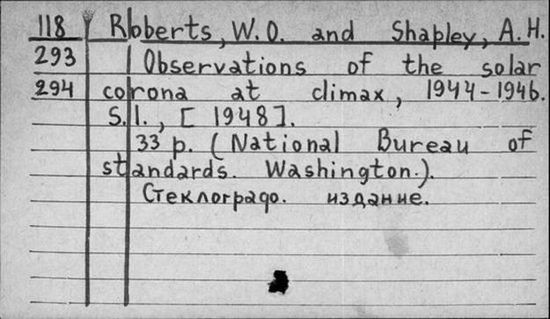 118 Roberts, W.O. and Shapley, A.H.
293 Observations of the solar
294 corona at climax, 1944-1946.
S.l., [1948].
33 p. (National Bureau of
standards. Washington.).
Стеклографо. издание.